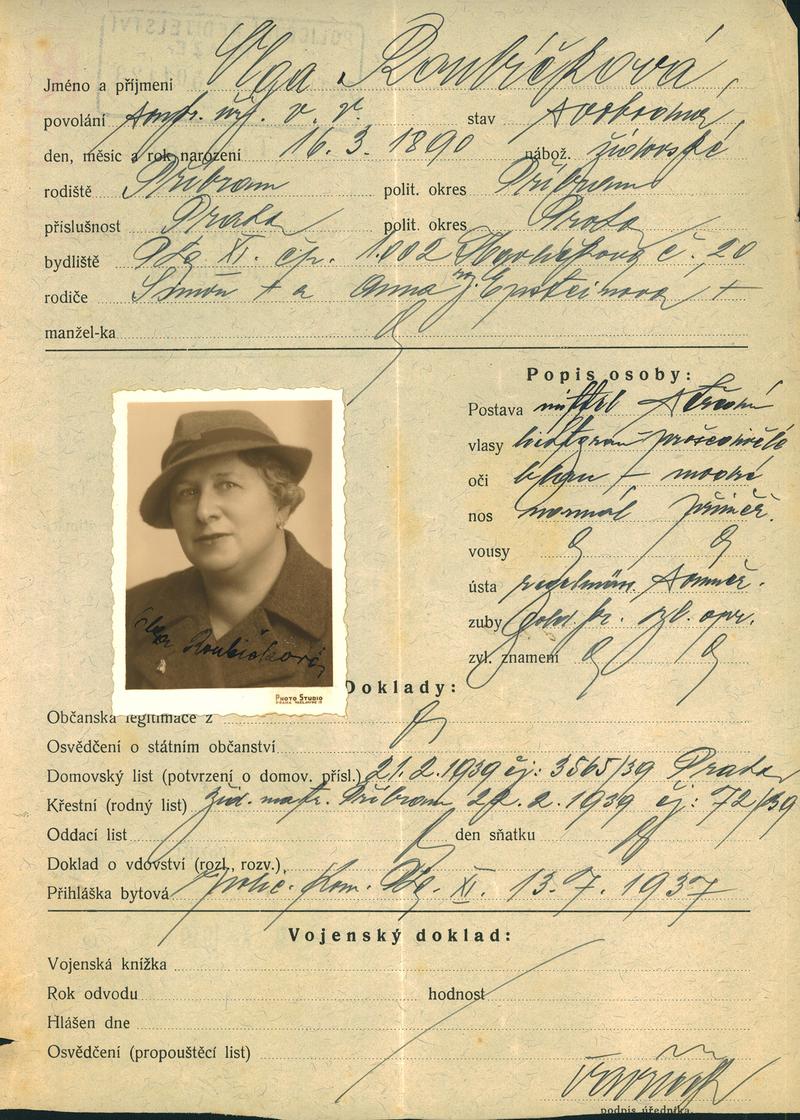 Jméno a příjmení Olga Roubíčková,
povolání soukr. úř. v. v. stav svobodná,
den, měsíc a rok narození 16. 3. 1890 nábož. židovské
rodiště Příbram polit. okres Příbram
příslušnost Praha polit. okres Praha
bydliště Pha XI. čp. 1002 č. 20
rodiče Šimon + a Anna roz. Epsteinová +
manžel-ka
Popis osoby:
Postava mittel střední
vlasy prošedivělé
oči blau – modré
nos normal přiměř.
vousy
ústa regelmäss. souměr.
zuby Gold. pr. zl. opr.
zvl. znamení
Olga Roubíčková
PHOTO STUDIO
Doklady:
Občanská legitimace z
Osvědčení o státním občanství
Domovský list (potvrzení o domov. přísl.) 21. 2. 1939 čj: 3565/39 Praha
Křestní (rodný list) žid. matr. Příbram 22. 2. 1939 čj: 72/39
Oddací list den sňatku
Doklad o vdovství (rozl., rozv.),
Přihláška bytová polic. kom. Pha. XI. 13. 7. 1937
Vojenský doklad:
Vojenská knížka
Rok odvodu hodnost
Hlášen dne
Osvědčení (propouštěcí list)
podpis úředníka.